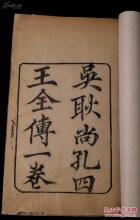 吳耿尚孔四
王全傳一卷